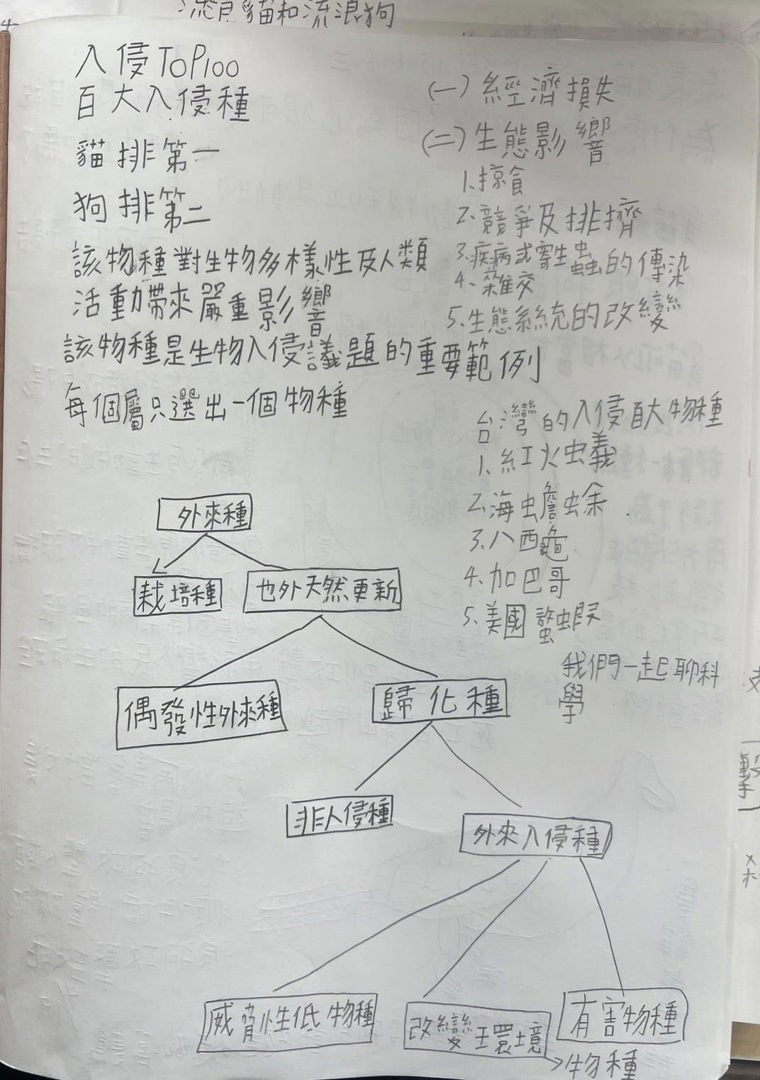 貓和流浪狗
入侵TOP100
百大入侵種
貓排第一
狗排第二
該物種對生物多樣性及人類
活動帶來嚴重影響
該物種是生物入侵議題的重要範例
每個屬只選出一個物種
(一)經濟損失
(二)生態影響
1.掠食
2.競爭及排擠
3.疾病或寄生蟲的傳染
4.雜交
5.生態系統的改變
台灣的入侵百大物種
1.紅火蟻
2.海蟾蜍
3.八西龜
4.加巴哥
5.美國螯蝦
我們一起聊科
學
外來種
栽培種
也外天然更新
偶發性外來種
歸化種
非入侵種
外來入侵種
威脅性低物種
改變環境
物種
有害物種